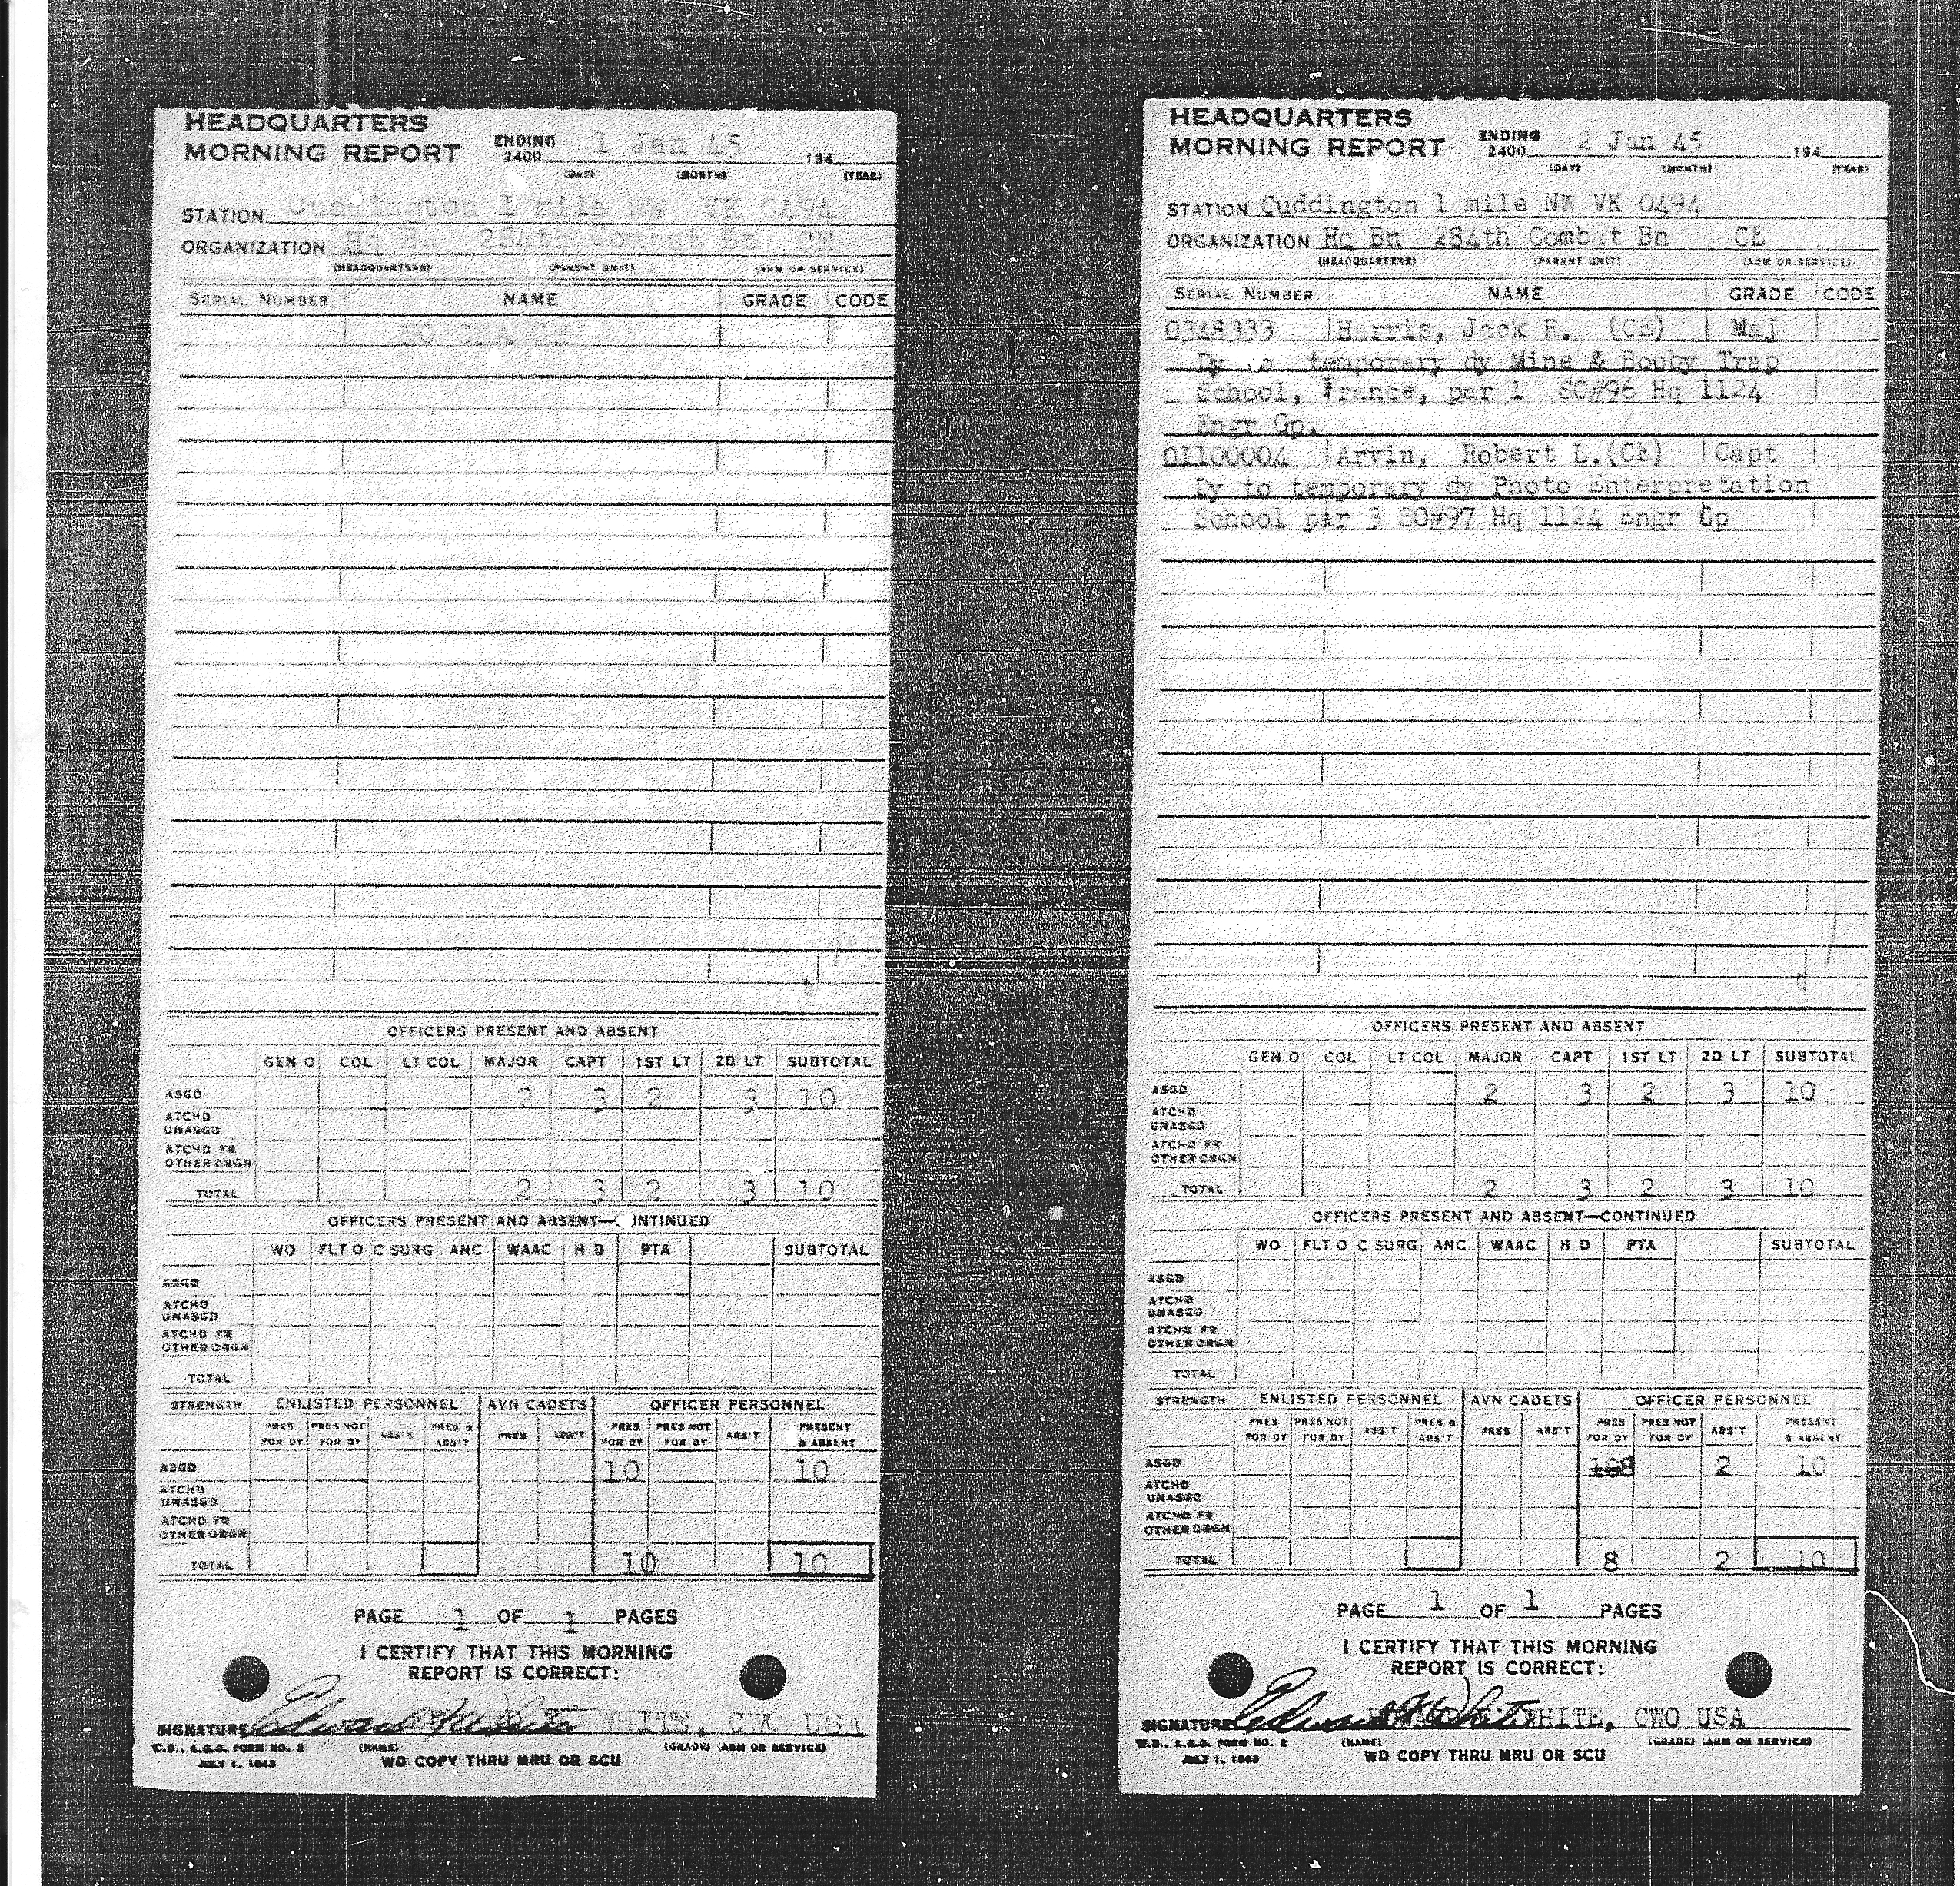 HEADQUARTERS
MORNING REPORT ENDING 2400 1 Jan 45 194
(DAY) (MONTH) (YEAR)
STATION Cuddington 1 mile NW VK 0494
ORGANIZATION Hq Bn 284th Combat Bn CE
(HEADQUARTERS) (PARENT UNIT) (ARM OR SERVICE)
SERIAL NUMBER NAME GRADE CODE
NO CHANGE
OFFICERS PRESENT AND ABSENT
GEN O COL LT COL MAJOR CAPT 1ST LT 2D LT SUBTOTAL
ASGD 2 3 2 3 10
ATCHD
UNASGD
ATCHD FR
OTHER ORGN
TOTAL 2 3 2 3 10
OFFICERS PRESENT AND ABSENT—C INTINUED
WO FLT O C SURG ANC WAAC H D PTA SUBTOTAL
ASGD
ATCHD
UNASGD
ATCHD FR
OTHER ORGN
TOTAL
STRENGTH ENLISTED PERSONNEL AVN CADETS OFFICER PERSONNEL
PRES PRES NOT ABS'T PRES & PRES ABS'T PRES PRES NOT ABS'T PRESENT
FOR DY FOR DY ABS'T FOR DY FOR DY & ABSENT
ASGD 10 10
ATCHD
UNASGD
ATCHD FR
OTHER ORGN
TOTAL 10 10
PAGE 1 OF 1 PAGES
I CERTIFY THAT THIS MORNING
REPORT IS CORRECT:
SIGNATURE Edward White WHITE, CWO USA
W.D., A.G.O. FORM NO. 2 (NAME) (GRADE) (ARM OR SERVICE)
JULY 1, 1943 WD COPY THRU MRU OR SCU
HEADQUARTERS
MORNING REPORT ENDING 2400 2 Jan 45 194
(DAY) (MONTH) (YEAR)
STATION Cuddington 1 mile NW VK 0494
ORGANIZATION Hq Bn 284th Combat Bn CE
(HEADQUARTERS) (PARENT UNIT) (ARM OR SERVICE)
SERIAL NUMBER NAME GRADE CODE
0348333 Harris, Jack R. (CE) Maj
Dy to temporary dy Mine & Booby Trap
School, France, par 1 SO#96 Hq 1124
Engr Gp.
01100004 Arvin, Robert L.(CE) Capt
Dy to temporary dy Photo Enterpretation
School par 3 SO#97 Hq 1124 Engr Gp
OFFICERS PRESENT AND ABSENT
GEN O COL LT COL MAJOR CAPT 1ST LT 2D LT SUBTOTAL
ASGD 2 3 2 3 10
ATCHD
UNASGD
ATCHD FR
OTHER ORGN
TOTAL 2 3 2 3 10
OFFICERS PRESENT AND ABSENT—CONTINUED
WO FLT O C SURG ANC WAAC H D PTA SUBTOTAL
ASGD
ATCHD
UNASGD
ATCHD FR
OTHER ORGN
TOTAL
STRENGTH ENLISTED PERSONNEL AVN CADETS OFFICER PERSONNEL
PRES PRES NOT ABS'T PRES & PRES ABS'T PRES PRES NOT ABS'T PRESENT
FOR DY FOR DY ABS'T FOR DY FOR DY & ABSENT
ASGD 108 2 10
ATCHD
UNASGD
ATCHD FR
OTHER ORGN
TOTAL 8 2 10
PAGE 1 OF 1 PAGES
I CERTIFY THAT THIS MORNING
REPORT IS CORRECT:
SIGNATURE Edward White WHITE, CWO USA
W.D., A.G.O. FORM NO. 2 (NAME) (GRADE) (ARM OR SERVICE)
JULY 1, 1943 WD COPY THRU MRU OR SCU